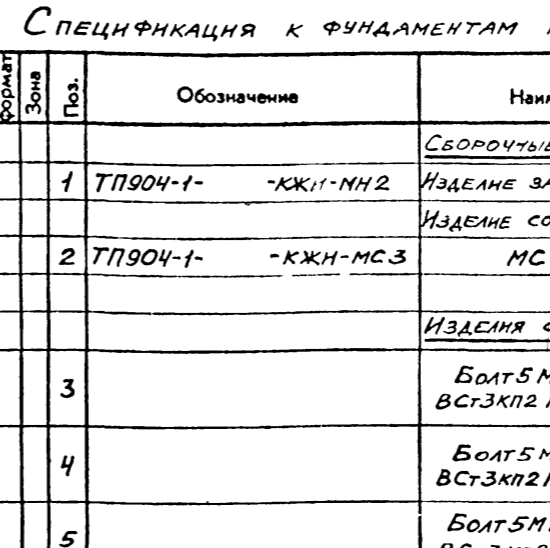 Спецификация к фундаментам
Формат Зона Поз. Обозначение
Сборочные
1 ТП904-1- -КЖИ-МН2 Изделие
Изделие
2 ТП904-1- -КЖИ-МС3 МС
Изделия
3 Болт5
ВСт3кп2
4 Болт5
ВСт3кп2
5 Болт5М